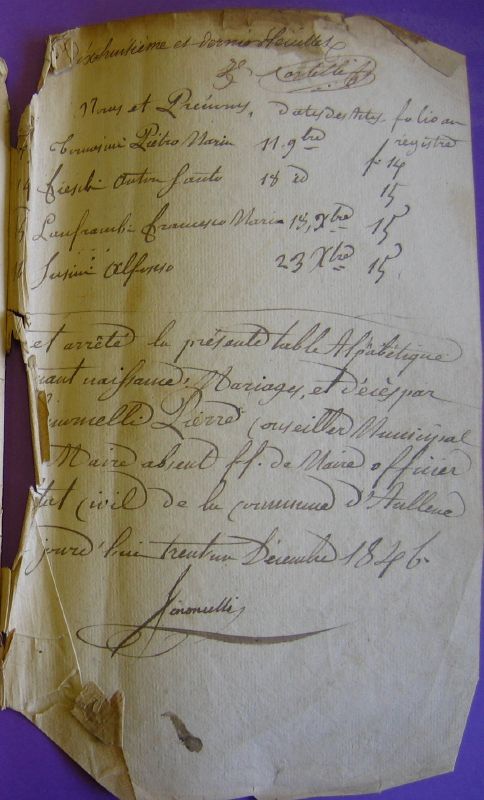 dixhuitième et dernier feuillet
Noms et Prénoms, dates des Actes, folio au
registre
Tomasini Pietro Maria 11 9bre fo 14
Fieschi Anton Santo 18 do 15
Lanfranchi Francesco Maria 18, Xbre 15
Susini Alfonso 23 Xbre 15
et arrêté la présente table Alpabétique
naissance, Mariages, et décès par
Simonelli Pierre Conseiller Municipal
Maire absent ff. de Maire officier
civil de la commune d'Aullene
jourd'hui trent un Décembre 1846.
Simonelli